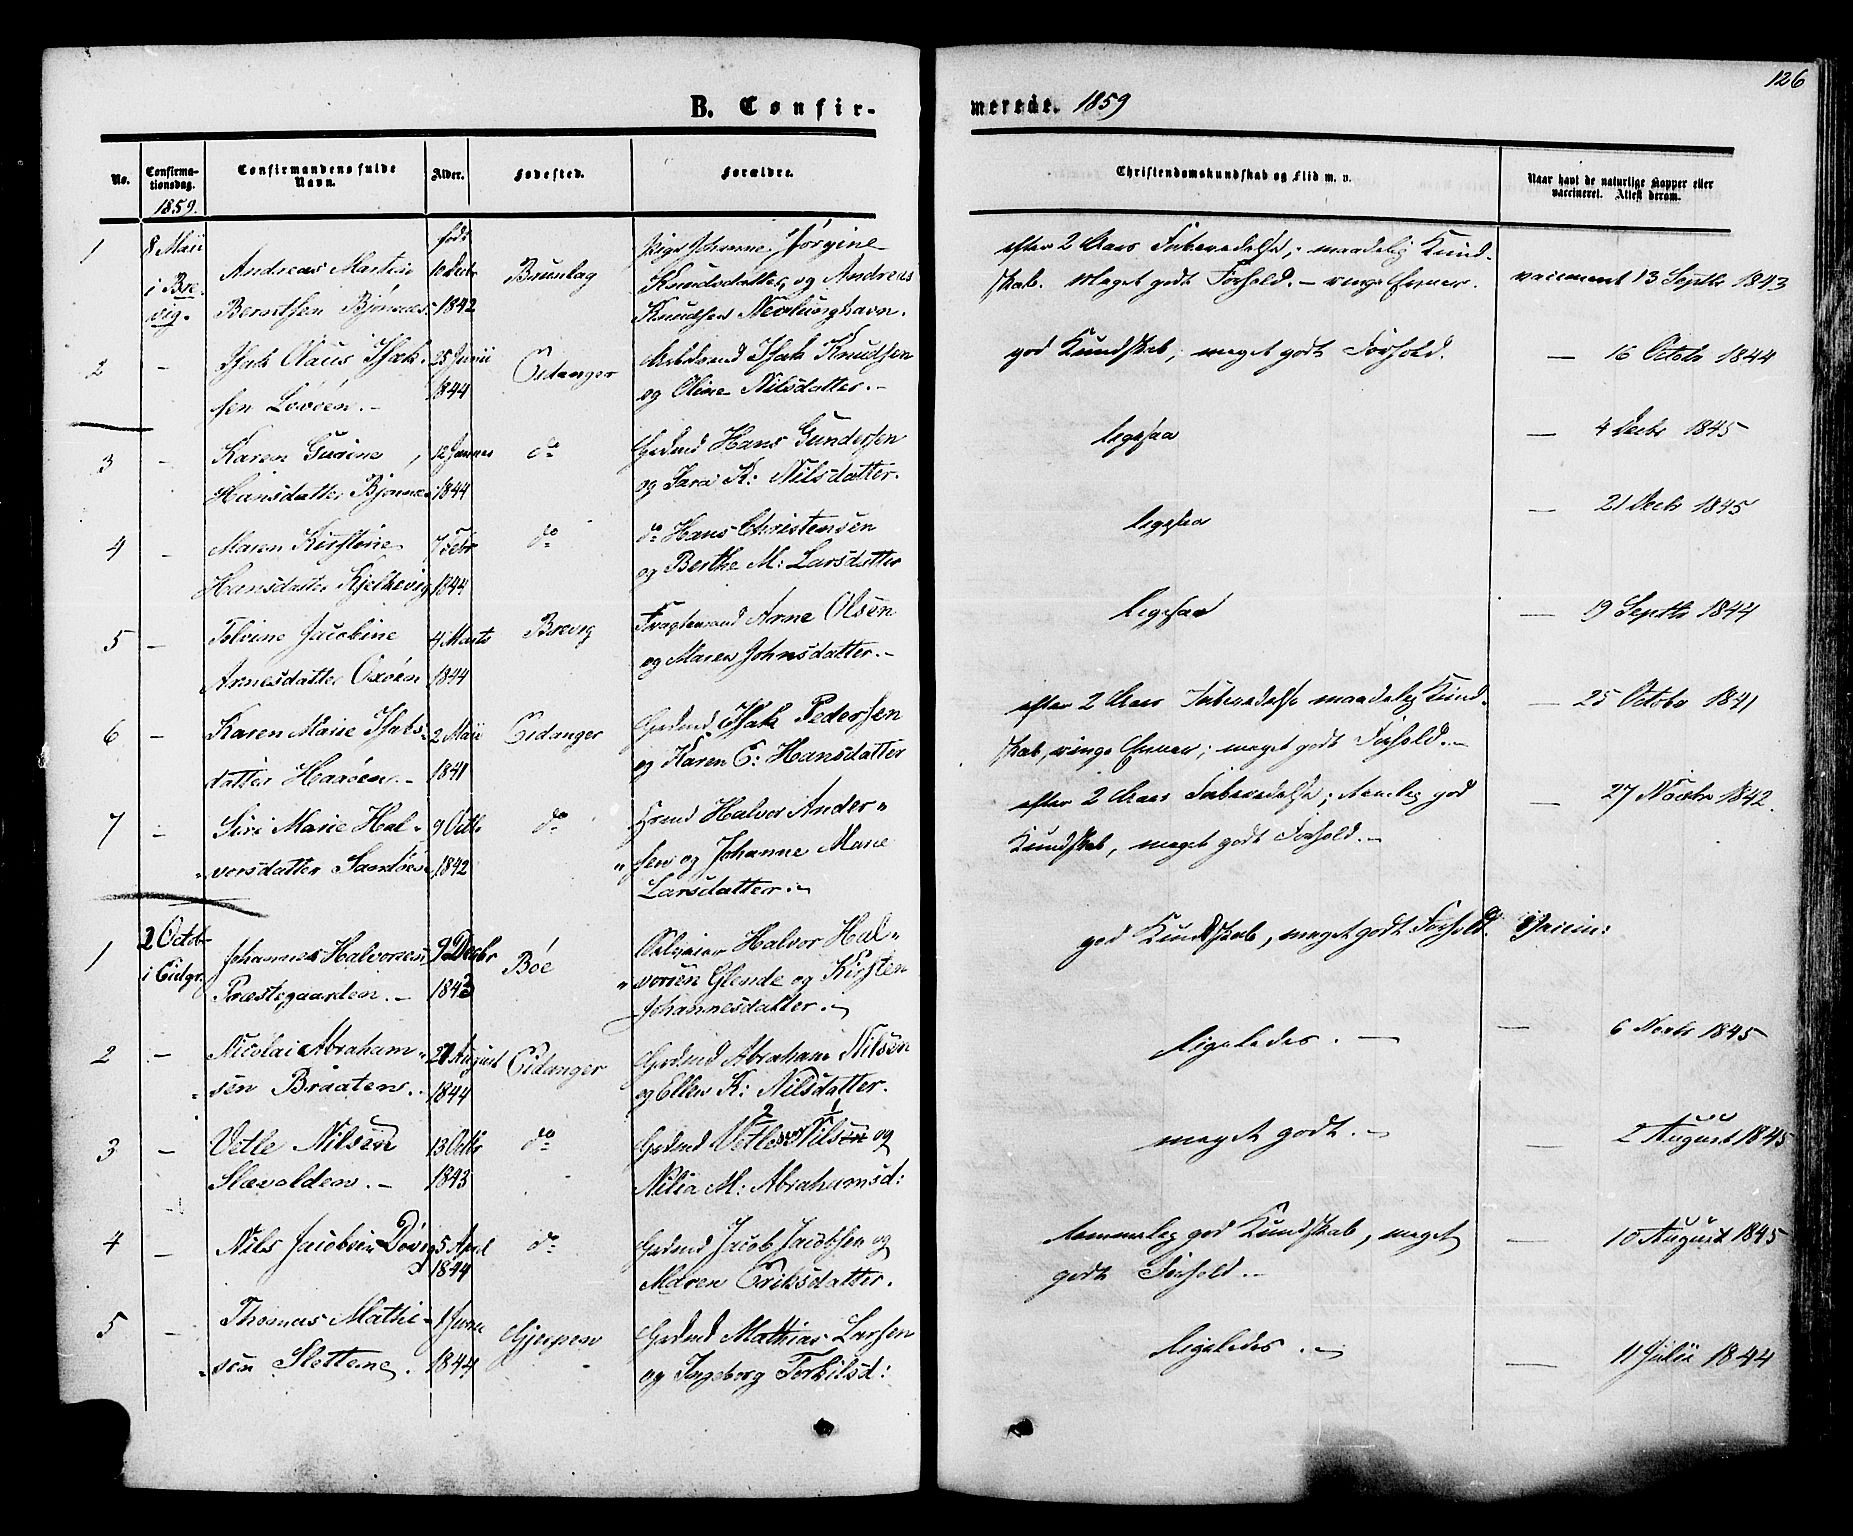 126
B. Confir-
merede. 1859
No.
Confirma-
tionsdag.
1859.
Confirmandens fulde
Navn.
Alder.
Fødested.
Forældre.
Christendomskundskab og Flid m. v.
Naar havt de naturlige Kopper eller
vaccineret. Attest derom.
1
8 Maii
i Bre-
vig.
født
Andreas Martin
Berntsen Bjønnes
1842
Brunlag
Pige Johanne Jørgine
Knudsdatter, og Andreas
Knudsen Nevlunghavn.
efter 2 Aars Forberedelse; maadelig Kund-
skab. Meget godt Forhold. – ringe Evner.
vaccineret 13 Septbr 1843
2
–
Isak Olaus Isak-
sen Løvøen. –
25 Junii
1844
Eidanger
Isak Knudsen
og Oline Nilsdatter. –
god Kundskab; meget godt Forhold.
— 16 Octobr 1844
3
–
Karen Gurine
Hansdatter Bjønnes
12
1844
do
Grdmd Hans Gundersen
og Sara K: Nilsdatter.
ligesaa
— 4 Decbr 1845
4
–
Maren Kirstine
Hansdatter Kjelkevig
7 Febr
1844
do
do Hans Christensen
og Berthe M: Larsdatter
ligesaa
— 21 Decbr 1845
5
–
Tolvine Jacobine
Arnesdatter Oxøen
4 Marts
1844
Brevig
Fragtemand Arne Olsen
og Maren Johnsdatter. –
ligesaa
— 19 Septbr 1844
6
–
Karen Marie Isaks-
datter Haaøen. –
2 Maii
1841
Eidanger
Grdmd Isak Pedersen
og Karen E: Hansdatter
efter 2 Aars Forberedelse maadelig Kund-
skab, ringe Evner; meget godt Forhold. –
— 25 Octobr 1841
7
–
Siri Marie Hal-
vorsdatter Sandøen
9 Octbr
1842
do
Hmd Halvor Ander-
sen og Johanne Marie
Larsdatter. –
efter 2 Aars Forberedelse; temmelig god
Kundskab, meget godt Forhold. –
— 27 Novbr 1842.
1
2 Octob-
i Eidgr.
Johannes Halvorsen
Præstegaarden. –
9 Decbr
1843
Bøe
Halvor Hal-
vorsen Glende og Kirsten
Johannesdatter. –
god Kundskab, meget godt Forhold.
Vaccin:
2
–
Nicolai Abraham-
sen Braaten.
August
1844
Eidanger
Grdmd Abraham Nilsen
og Ellen K: Nilsdatter.
ligeledes. –
— 6 Novbr 1845
3
–
Vetle Nilsen
Slævolden. –
13 Octbr
1843
do
2 1
Grdmd Vetlesen Nils og
Nilia M: Abrahamsd:
meget godt. –
— 2 August 1845
4
–
Nils Jacobsen Døvig
5 April
1844
do
Grdmd Jacob Jacobsen og
Maren Eriksdatter.
temmelig god Kundskab, meget
godt Forhold. –
— 10 August 1845
5
–
Thomas Mathi-
sen Slettene.
1 Juni
1844
Gjerpen
Grdmd Mathias Larsen
og Ingeborg Torkilsd:
ligeledes. –
— 11 Julii 1844